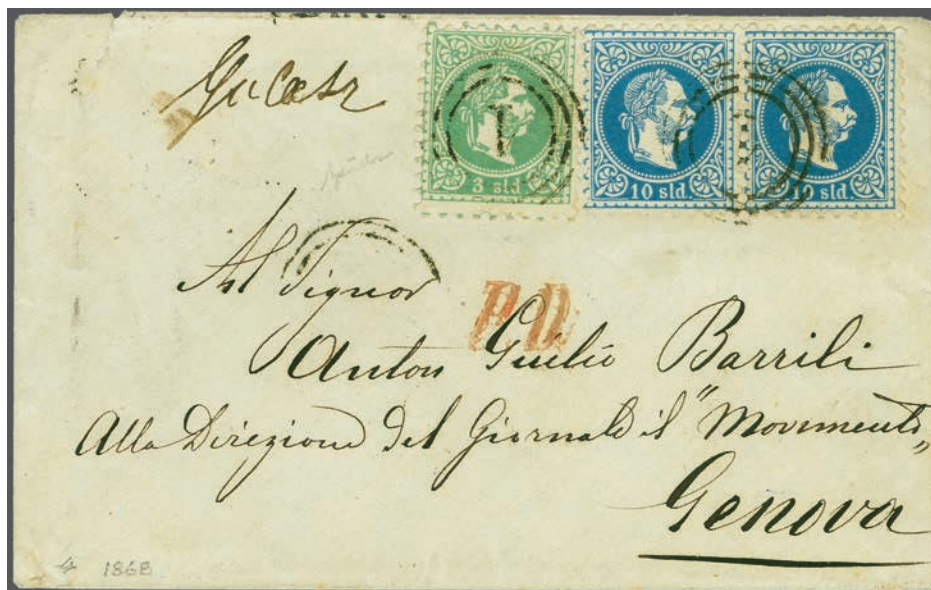 3 sld.
10 sld.
10 sld.
Al Signor
P.D.
Anton Giulio Barrili
Alla Direzione del Giornale il "Movimento"
Genova
4 1868